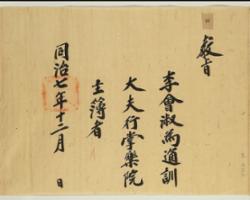 教旨
李會淑爲通訓
大夫行掌樂院
主簿者
同治七年十二月　日